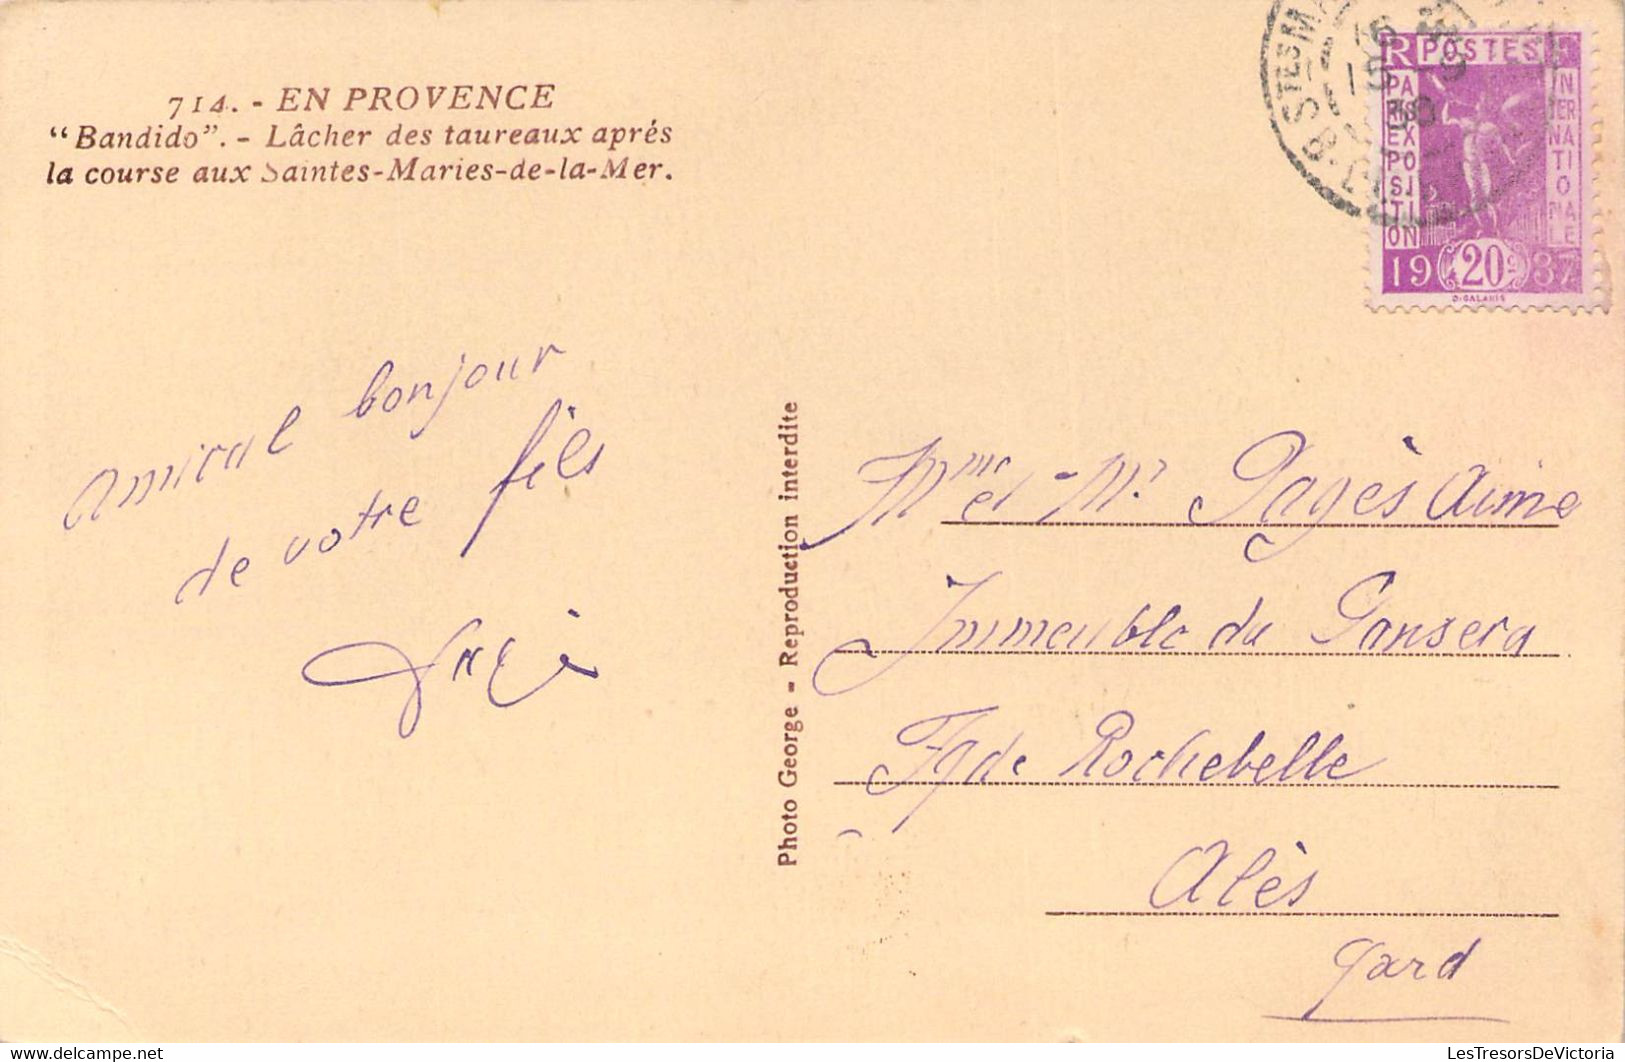 714. - EN PROVENCE
“Bandido”. - Lâcher des taureaux aprés
la course aux Saintes-Maries-de-la-Mer.
Amical bonjour
de votre fils
Photo George - Reproduction interdite
RF POSTES
PARIS EXPOSITION
INTERNATIONALE
19 20c 37
STES M
Mme et Mr Pagès Aimé
Immeuble du Gansera
Fg de Rochebelle
Alès
Gard
www.delcampe.net
LesTresorsDeVictoria